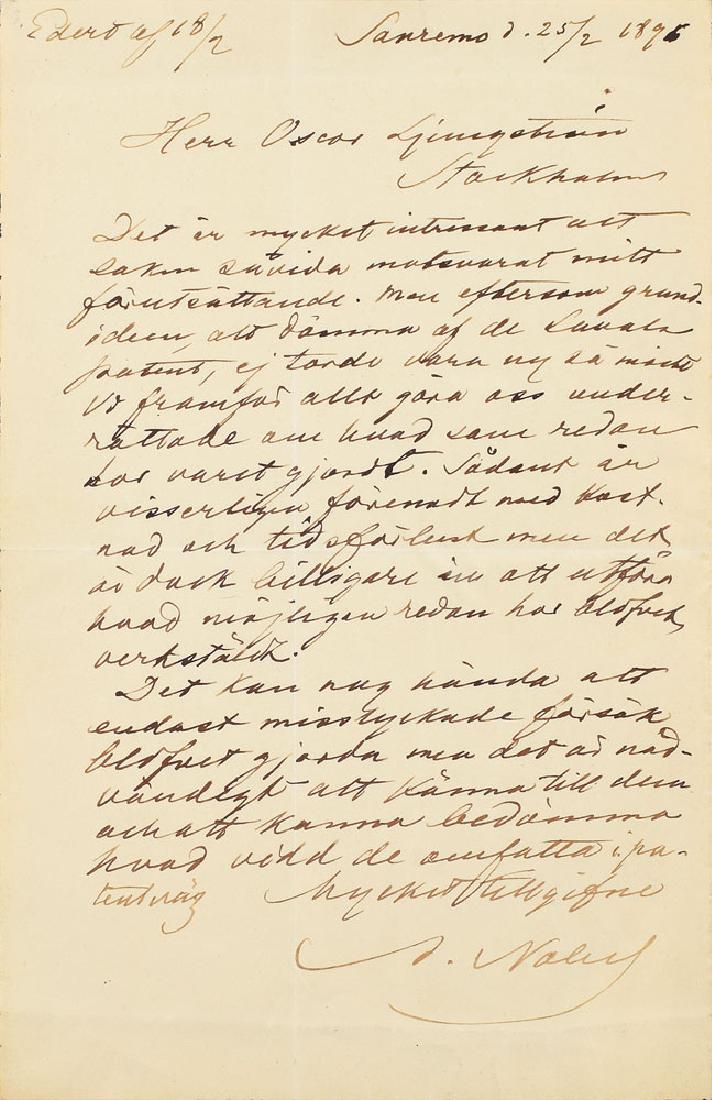 Edert af 18/2
Sanremo d. 25/2 189
Herr Oscar Ljungström
Stockholm
Det är mycket intressant att
saken såvida motsvarat mitt
förutsättande. Men eftersom grund-
ideen, att dömma af de Lavals
patent, ej torde vara ny så måste
vi framför allt göra oss under-
rättade om hvad som redan
har varit gjordt. Sådant är
visserligen förenadt med kost-
nad och tidsförlust men det
är dock billigare än att utföra
hvad möjligen redan har blifvit
verkstäldt.
Det kan nog hända att
endast misslyckade försök
blifvit gjorda men det är nöd-
vändigt att känna till dem
och att kunna bedömma
hvad vidd de omfatta i pa-
tentväg Mycket tillgifne
A. Nobel